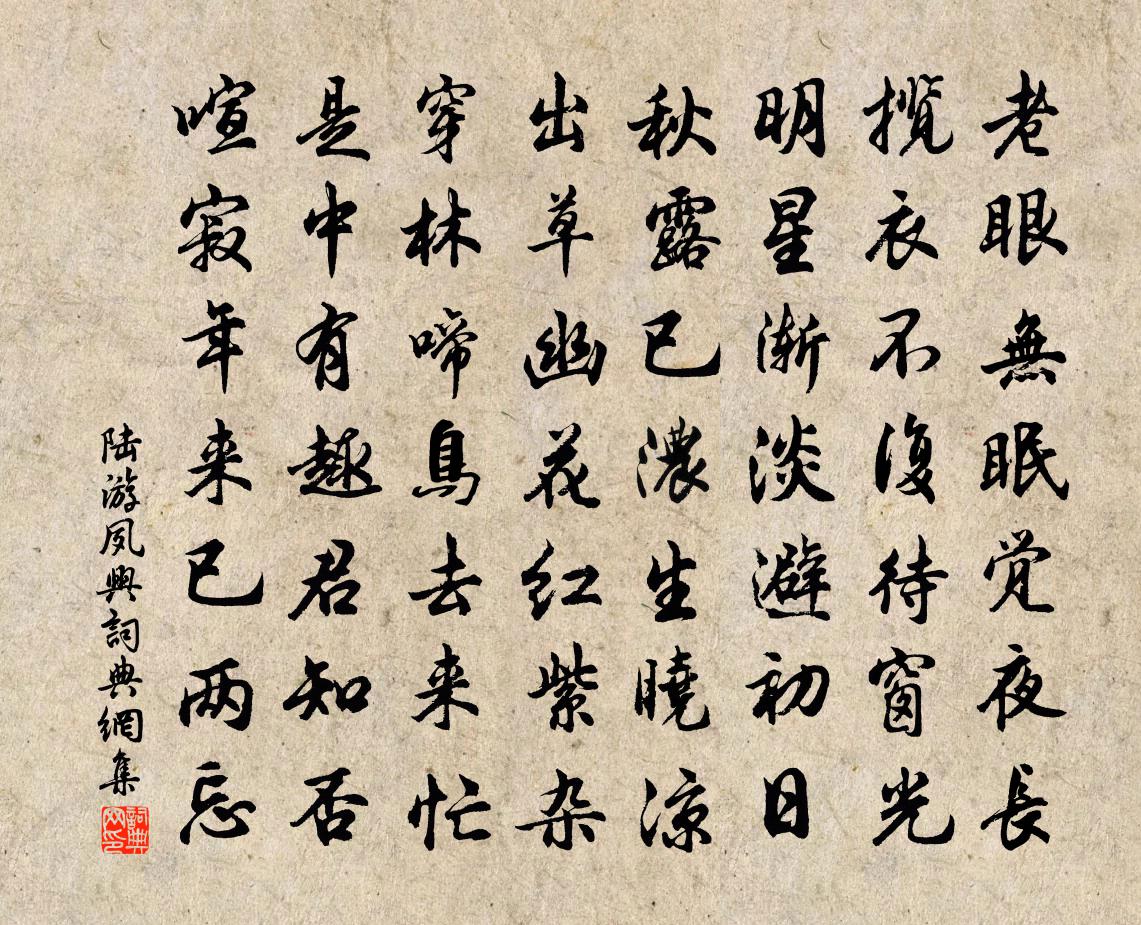 老眼無眠觉夜長
揽衣不復待窗光
明星渐淡避初日
秋露已濃生曉凉
出草幽花红紫杂
穿林啼鳥去来忙
是中有趣君知否
喧寂年来已两忘
陆游夙興詞典網集
詞典网印